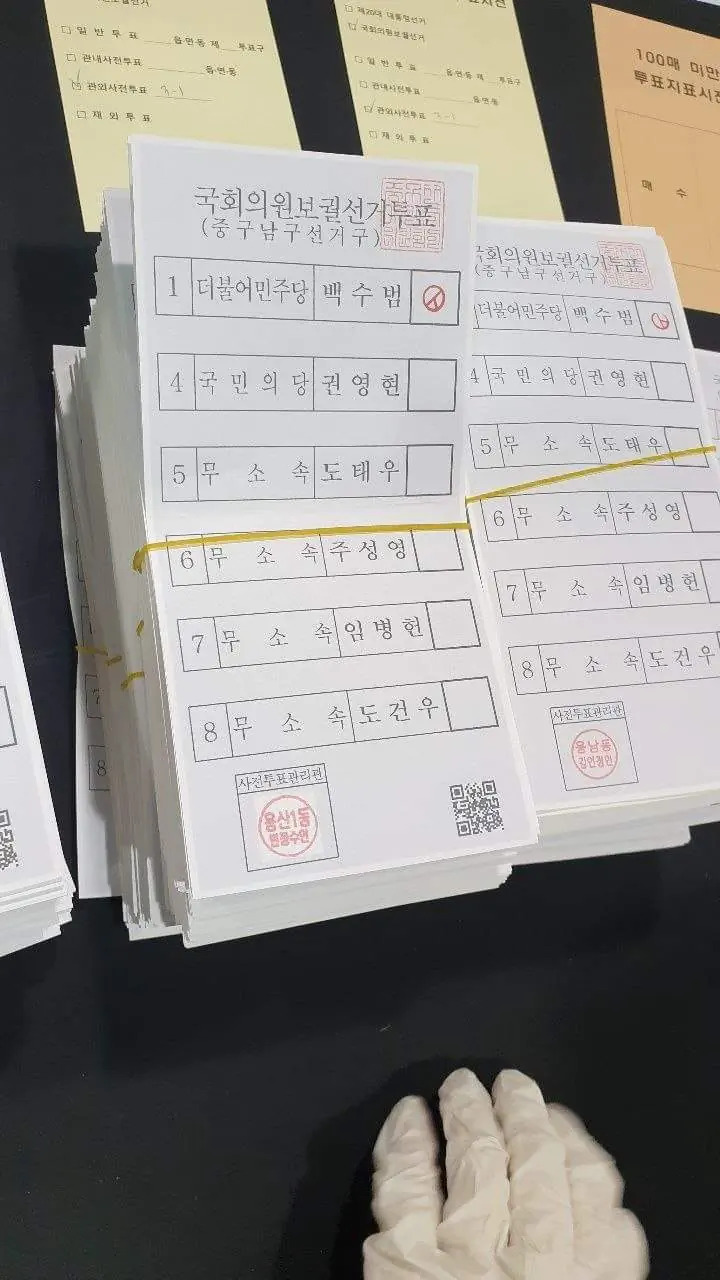 선거
□ 일 반 투 표 ____ 읍·면·동 제__투표구
□ 관내사전투표 ________ 읍·면·동
☑ 관외사전투표 3-1
□ 재 외 투 표
□ 제20대 대통령선거
☑ 국회의원보궐선거
□ 일 반 투 표 ____ 읍·면·동 제__투표구
□ 관내사전투표 ________ 읍·면·동
☑ 관외사전투표 3-1
□ 재 외 투 표
100매 미만
투표지표시전
매 수
국회의원보궐선거투표
(중구남구선거구)
1 더불어민주당 백수범
4 국민의당 권영현
5 무소속 도태우
6 무소속 주성영
7 무소속 임병헌
8 무소속 도건우
사전투표관리관
용산1동
국회의원보궐선거투표
(중구남구선거구)
더불어민주당 백수범
4 국민의당 권영현
5 무소속 도태우
6 무소속 주성영
7 무소속 임병헌
8 무소속 도건우
사전투표관리관
용남동
7
8